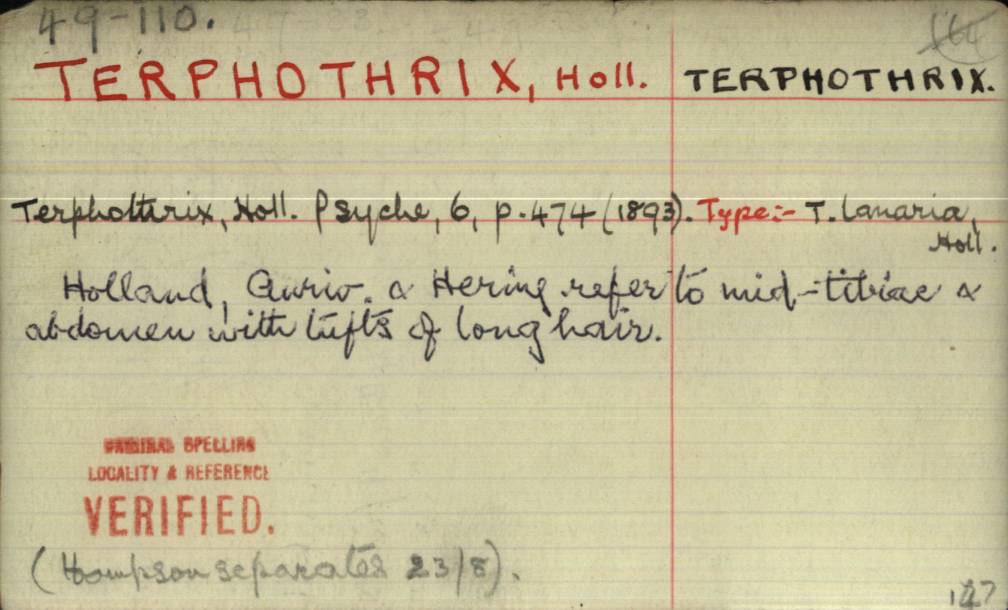 49-110.
TERPHOTHRIX, Holl. TERPHOTHRIX.
Terphothrix, Holl. Psyche, 6, p. 474 (1893). Type:- T. lanaria,
Holl.
Holland, Auriv. & Hering refer to mid-tibiae &
abdomen with tufts of long hair.
ORIGINAL SPELLING
LOCALITY & REFERENCE
VERIFIED.
(Hampson separates 23/8).